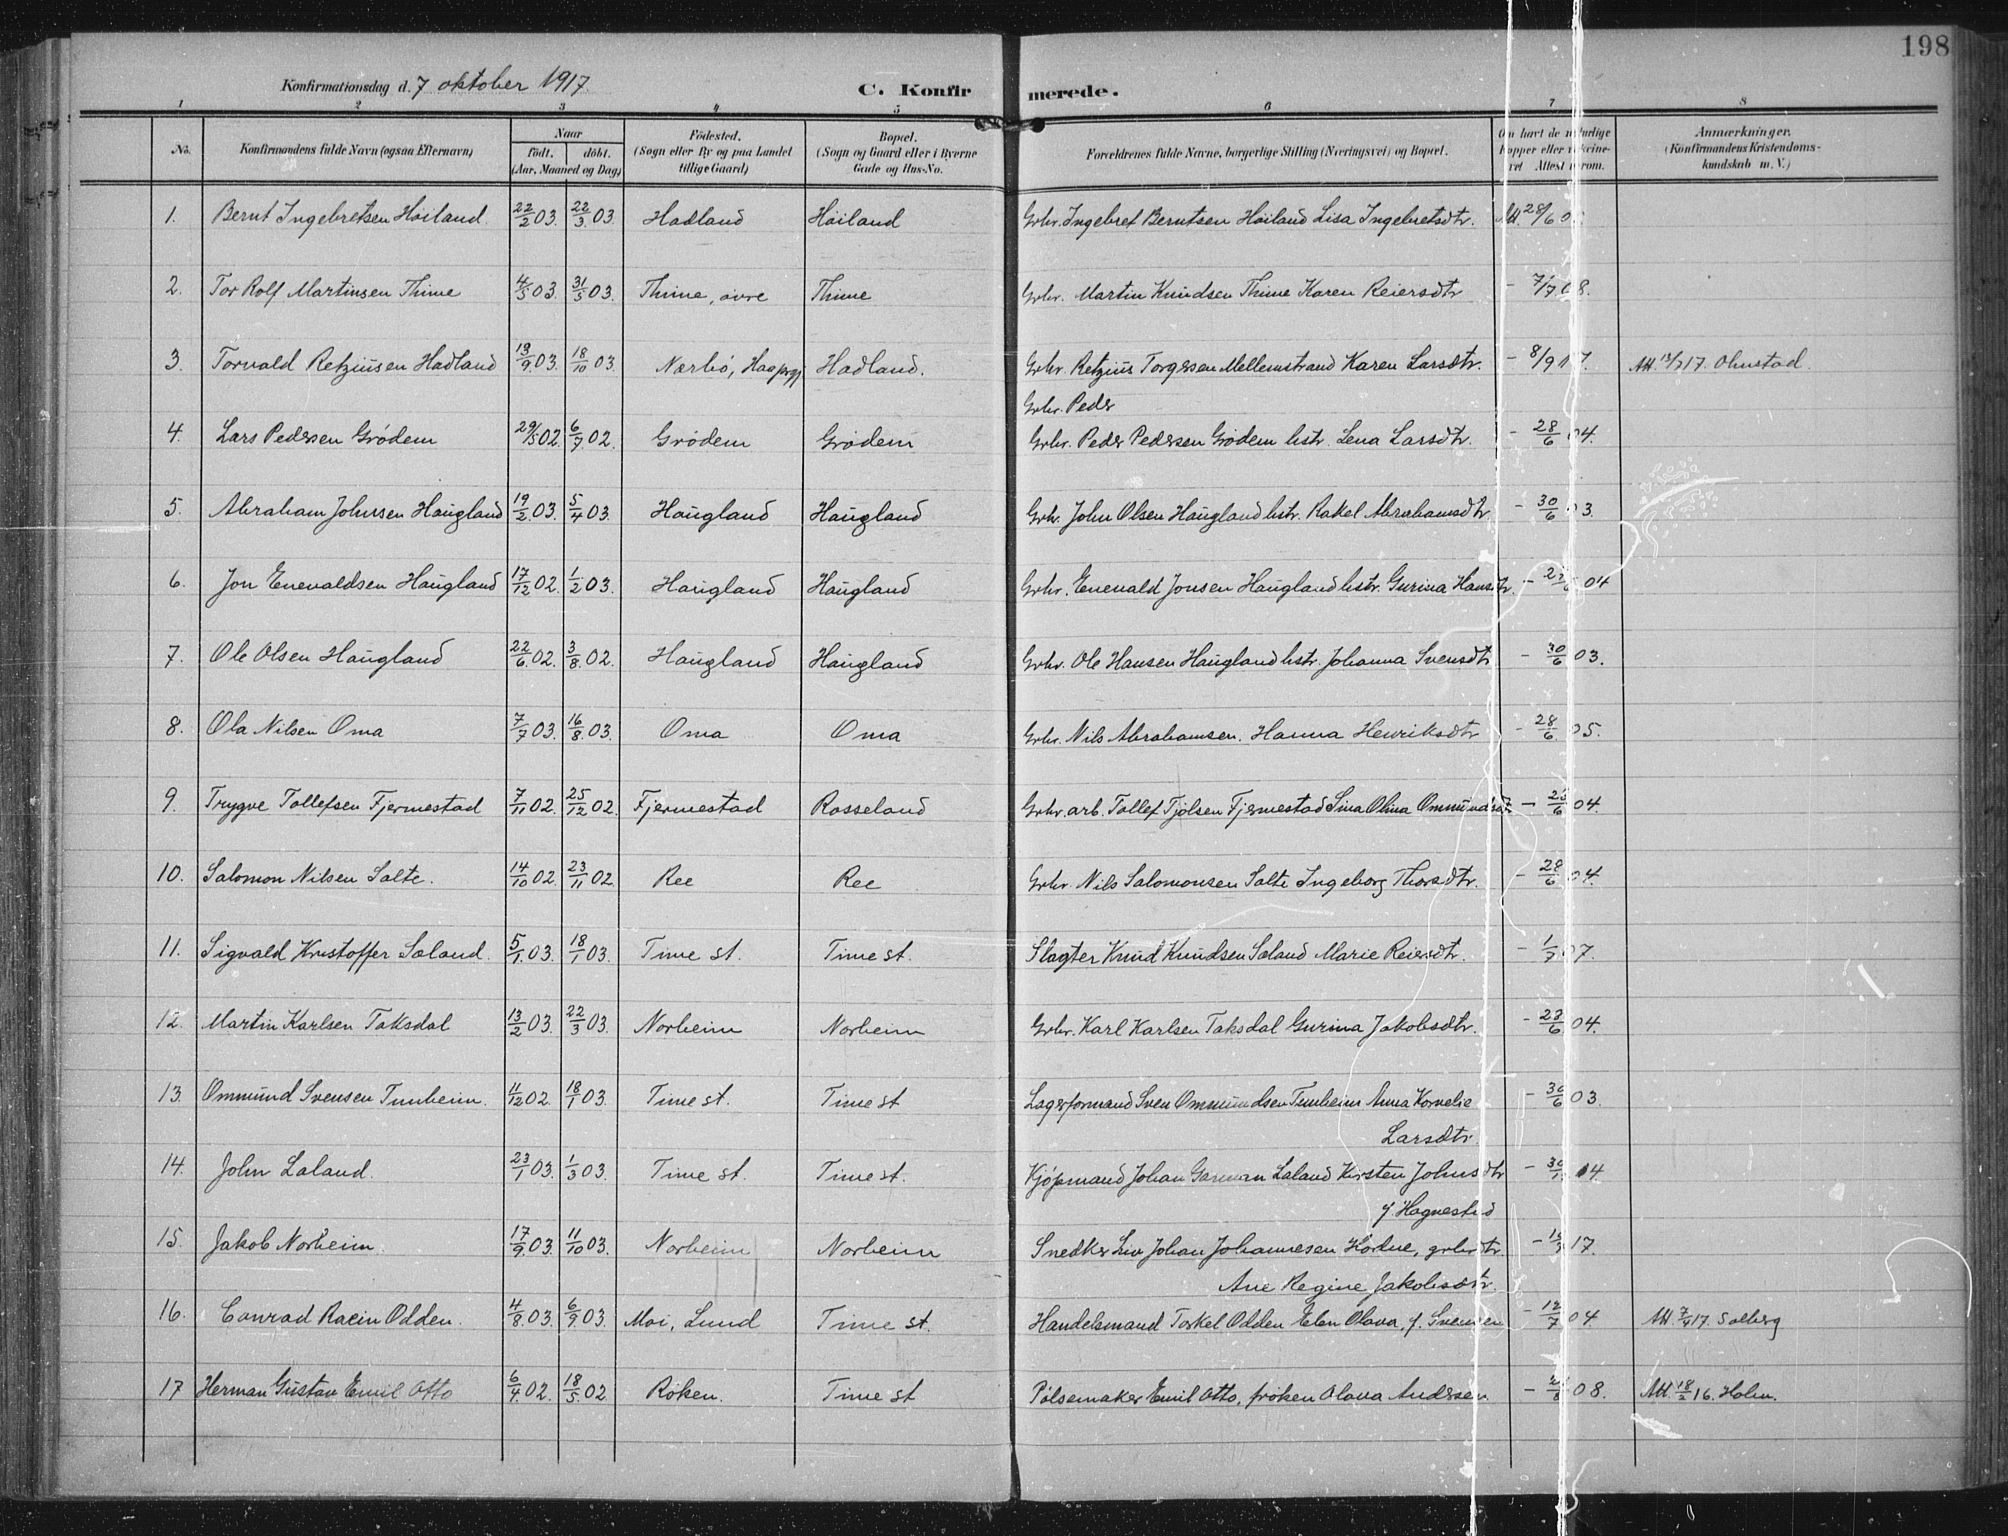 198
Konfirmationsdag d. 7 oktober 1917.
C. Konfirmerede.
1 2 3 4 5 6 7 8
No. Konfirmandens fulde Navn (ogsaa Efternavn) Naar født. døbt. (Aar, Maaned og Dag) Fødested. (Sogn eller By og paa Landet tillige Gaard) Bopæl. (Sogn og Gaard eller i Byerne Gade og Hus-No. Forældrenes fulde Navne, borgerlige Stilling (Næringsvei) og Bopæl. Om havt de naturlige kopper eller vaccineret Attest derom. Anmærkninger. (Konfirmandens Kristendomskundskab m. V.)
1. Bernt Ingebretsen Høiland 22/2 03. 22/3 03. Hadland Høiland Grbr. Ingebret Berntsen Høiland Lisa Ingebretsdtr. Att. 28/6
2. Tor Rolf Martinsen Thime 4/5 03. 31/5 03. Thime, øvre Thime Grbr. Martin Knudsen Thime Karen Reiersdtr - 7/7 08.
3. Torvald Retziusen Hadland 13/9 03. 18/10 03. Nærbø, Haa prgj Hadland. Grbr. Retzius Torgersen Mellemstrand Karen Larsdtr. - 8/9 17. Att. 17. Ohnstad.
Grbr. Peder
4. Lars Pedersen Grødem 29/5 02. 6/7 02. Grødem Grødem Grbr. Peder Pedersen Grødem hstr. Lena Larsdtr. - 28/6 04.
5. Abraham Johnsen Haugland 19/2 03. 5/4 03. Haugland Haugland Grbr. John Olsen Haugland hstr. Rakel Abrahamsdtr - 30/6 03.
6. Jon Enevaldsen Haugland 17/12 02. 1/2 03. Haugland Haugland Grbr. Enevald Jonsen Haugland hstr. Gurina Hansdtr. - 04
7. Ole Olsen Haugland 22/6 02. 3/8 02. Haugland Haugland Grbr. Ole Hansen Haugland hstr. Johanna Svensdtr - 30/6 03.
8. Ola Nilsen Oma 7/7 03. 16/8 03. Oma Oma Grbr. Nils Abrahamsen. Hanna Henriksdtr - 28/6 05.
9. Trygve Tollefsen Fjermestad 7/11 02. 25/12 02. Fjermestad Rosseland Grbr. arb. Tollef Tjølsen Fjermestad Sina Olina Ommundsdtr - 28/6 04.
10. Salomon Nilsen Salte. 14/10 02. 23/11 02. Ree Ree Grbr. Nils Salomonsen Salte Ingeborg Thorsdtr. - 28/6 04.
11. Sigvald Kristoffer Sæland. 5/1 03. 18/1 03. Time st. Time st. Slagter Knud Knudsen Sæland Marie Reiersdtr. - 1/7 07.
12. Martin Karlsen Taksdal 13/2 03. 22/3 03. Norheim Norheim Grbr. Karl Karlsen Taksdal Gurina Jakobsdtr. - 28/6 04.
13. Ommund Svensen Tunheim. 11/12 02. 18/1 03. Time st. Time st Lagerformand Sven Ommundsen Tunheim Anna Kornelie - 30/6 03.
Larsdtr
14. John Laland. 23/1 03. 1/3 03. Time st. Time st. Kjøpmand Johan Garman Laland Kirsten Johnsdtr - 04.
f. Hognestad
15. Jakob Norheim. 17/9 03. 11/10 03. Norheim Norheim Snedker Johan Johannesen Hodne, grbr dtr. - 17.
Ane Regine Jakobsdtr.
16. Conrad Racin Odden. 4/8 03. 6/9 03. Moi, Lund Time st. Handelsmand Torkel Odden Elen Olava, f. Svensen - 12/7 04. Att. 17. Solberg
17 Herman Gustav Emil Otto 6/4 02. 18/5 02. Røken. Time st Pølsemaker Emil Otto, frøken Olava Andersen. - 08. Att. 18/2 16. Holm.